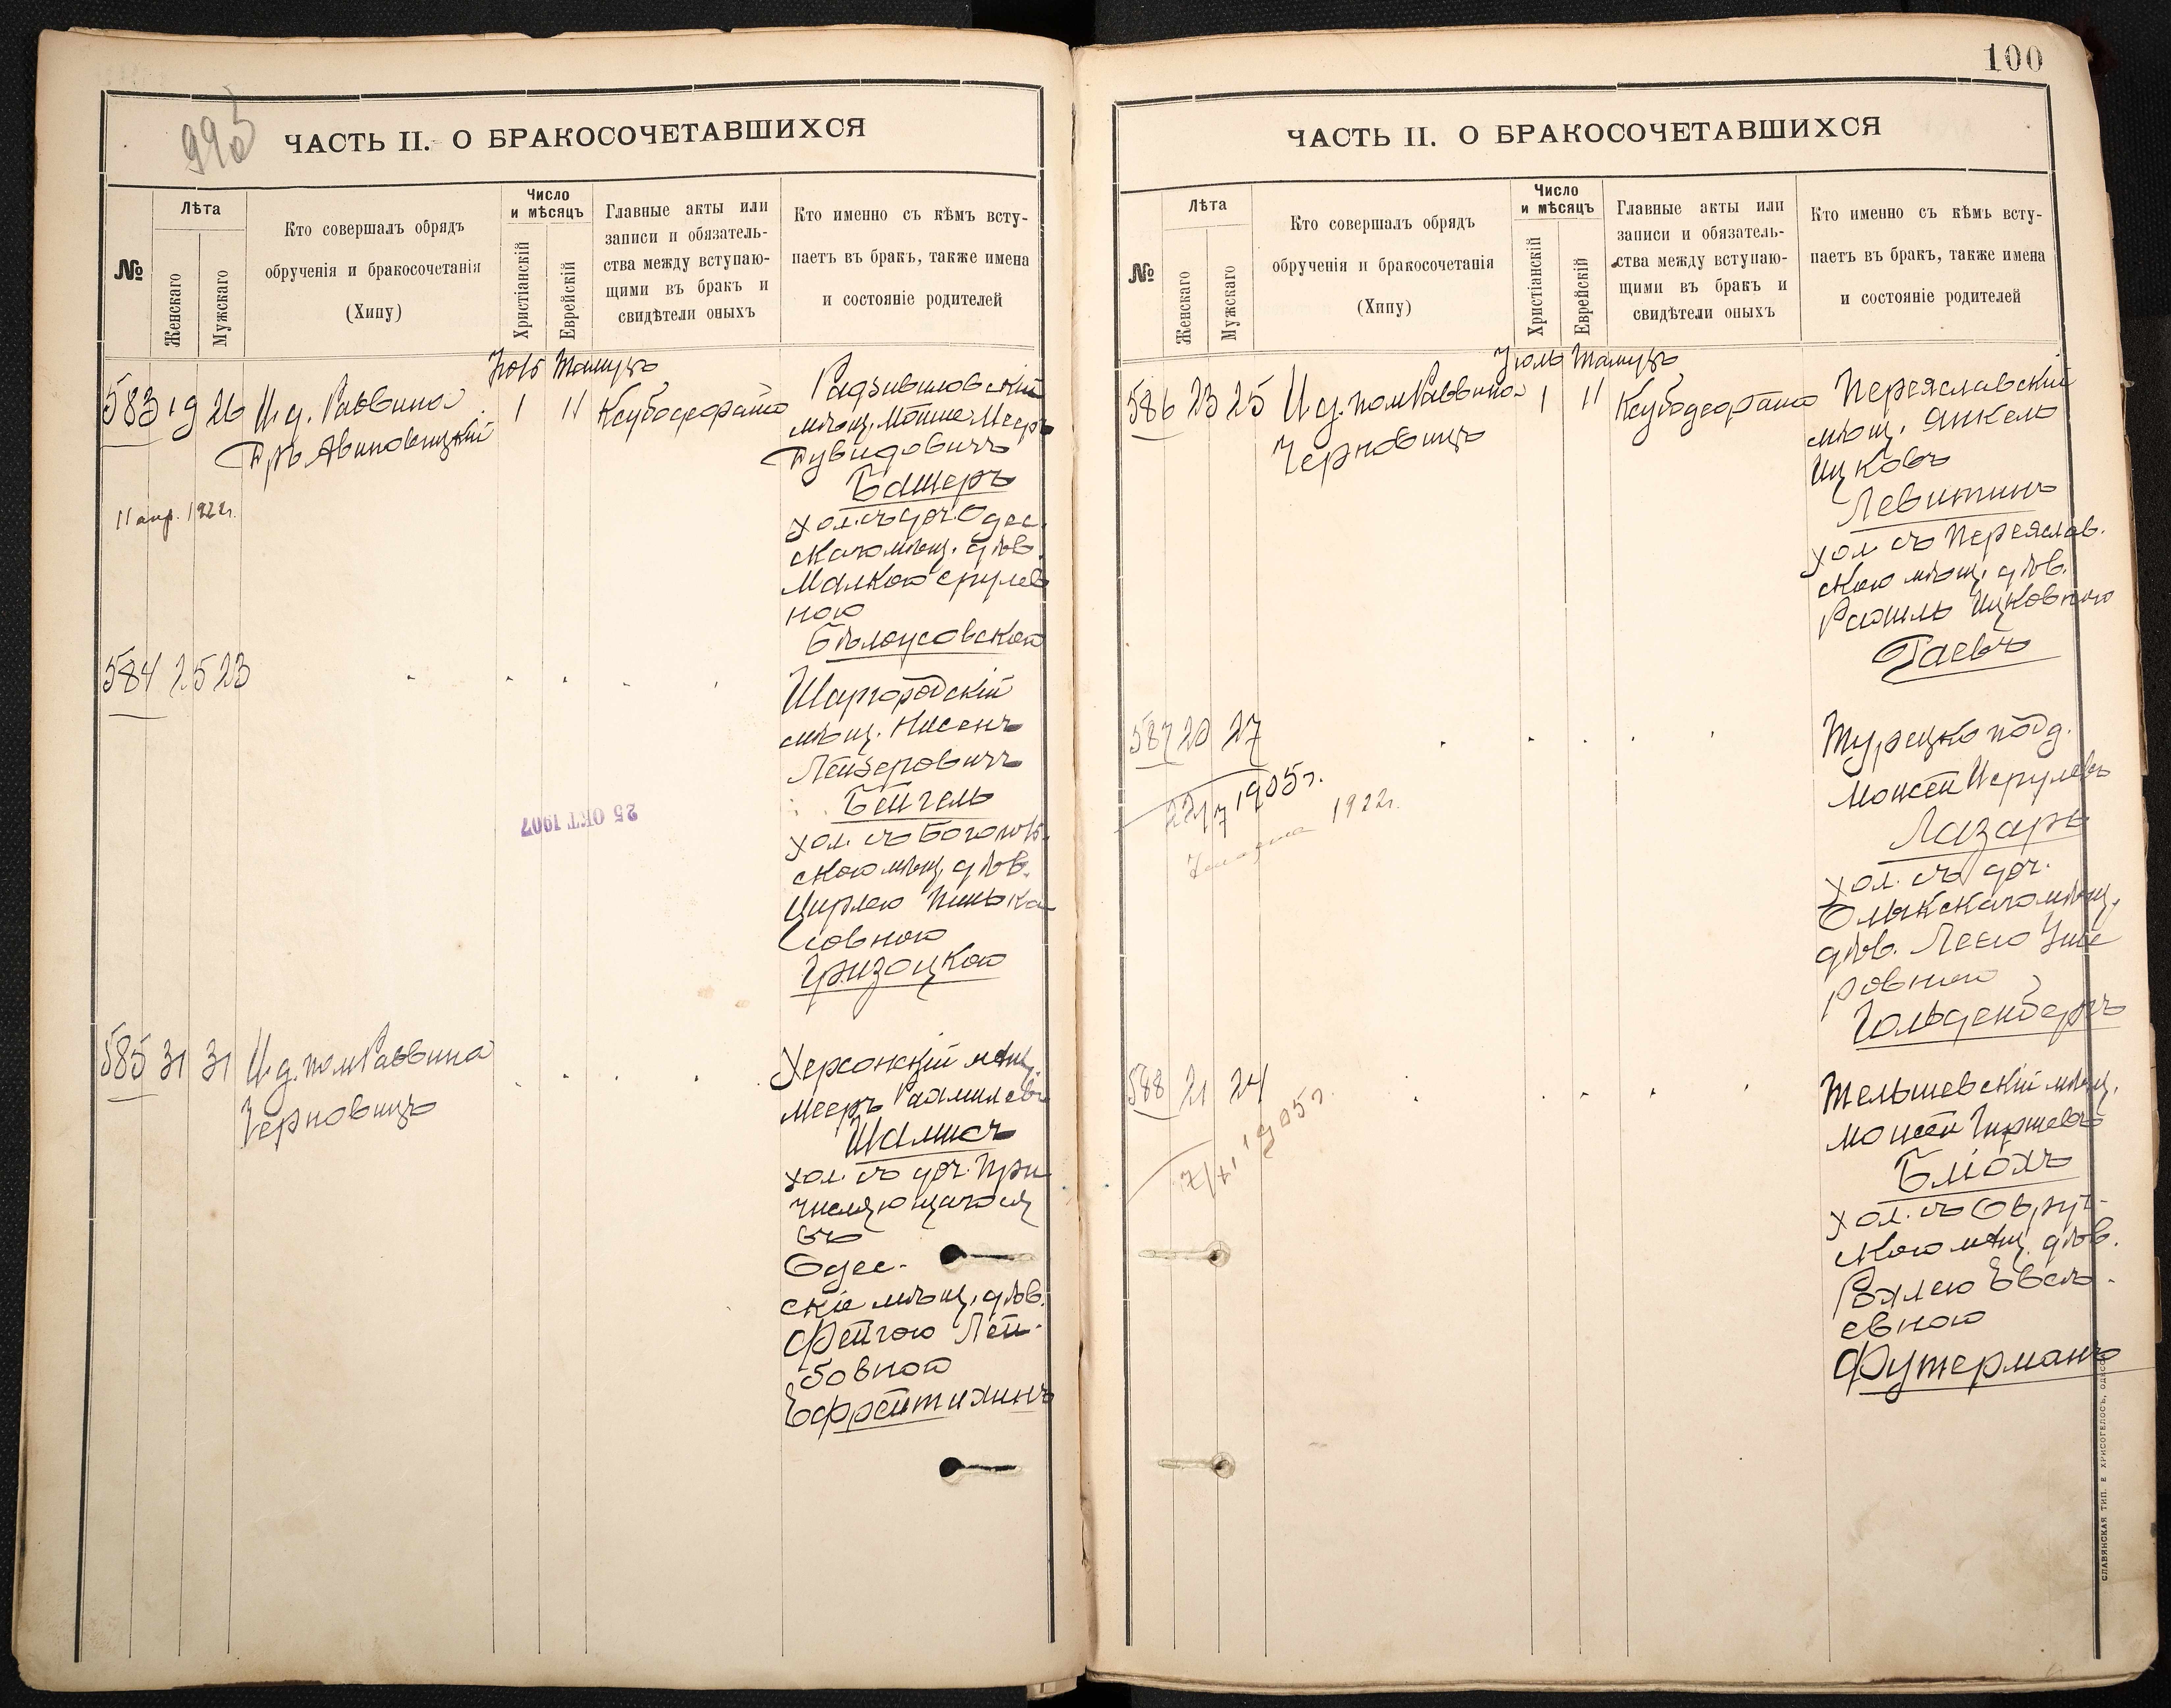 995
ЧАСТЬ II. О БРАКОСОЧЕТАВШИХСЯ
№
Лѣта
Женскаго
Мужскаго
Кто совершалъ обрядъ
обрученія и бракосочетанія
(Хипу)
Число
и мѣсяцъ
Христіанскій
Еврейскій
Главные акты или
записи и обязатель-
ства между вступаю-
щими въ бракъ и
свидѣтели оныхъ
Кто именно съ кѣмъ всту-
паетъ въ бракъ, также имена
и состояніе родителей
Тамузъ
583 19 26 И. д. Раввина 1 11
Гръ Авиновицкій
11 апр. 1922г.
Радзивиловскій
мѣщ. Мойше Мееръ
Дувидовичъ
Башеръ
хол. съ доч. Одес.
скаго мѣщ. дѣв.
Малкою Срулев
ною
Бѣлоусовскою
584 25 23
Шаргородскій
мѣщ. Нисенъ
Лейзеровичъ
Бейгель
хол. съ Богопол.
скою мѣщ. дѣв.
Цирлею Пинька
совною
Гризоцкою
25 ОКТ 1907
585 31 31 И. д. пом Раввина
Черновицъ
Херсонскій мѣщ.
Мееръ Рахмилевъ
Шамисъ
хол. съ доч. При
числяющагося
въ
Одес-
скіе мѣщ. дѣв.
Фейгою Лей-
бовною
Ефрейтихинъ
100
ЧАСТЬ II. О БРАКОСОЧЕТАВШИХСЯ
№
Лѣта
Женскаго
Мужскаго
Кто совершалъ обрядъ
обрученія и бракосочетанія
(Хипу)
Число
и мѣсяцъ
Христіанскій
Еврейскій
Главные акты или
записи и обязатель-
ства между вступаю-
щими въ бракъ и
свидѣтели оныхъ
Кто именно съ кѣмъ всту-
паетъ въ бракъ, также имена
и состояніе родителей
Іюль Тамузъ
586 23 25 И. д. пом Раввина 1 11
Черновицъ
Переяславскій
мѣщ. Янкель
Ицковъ
Левитинъ
хол. съ Переяслав.
скою мѣщ. дѣв.
Рахиль Ицковною
Гаевъ
587 20 27
22/7 1905г.
1922г.
Турецко под.
Мойсей Исрулевъ
Лазарь
хол. съ доч.
Олыкскаго мѣщ.
дѣв. Леею Уше
ровною
Гольденбергъ
588 21 24
1905г.
Тельшевскій мѣщ.
Мойсей Гиршевъ
Бліохъ
хол. съ Овруч-
скою мѣщ. дѣв.
Рохлею Евсе-
евною
Футерманъ
СЛАВЯНСКАЯ ТИП. Е. ХРИСОГЕЛОСЪ, ОДЕССА